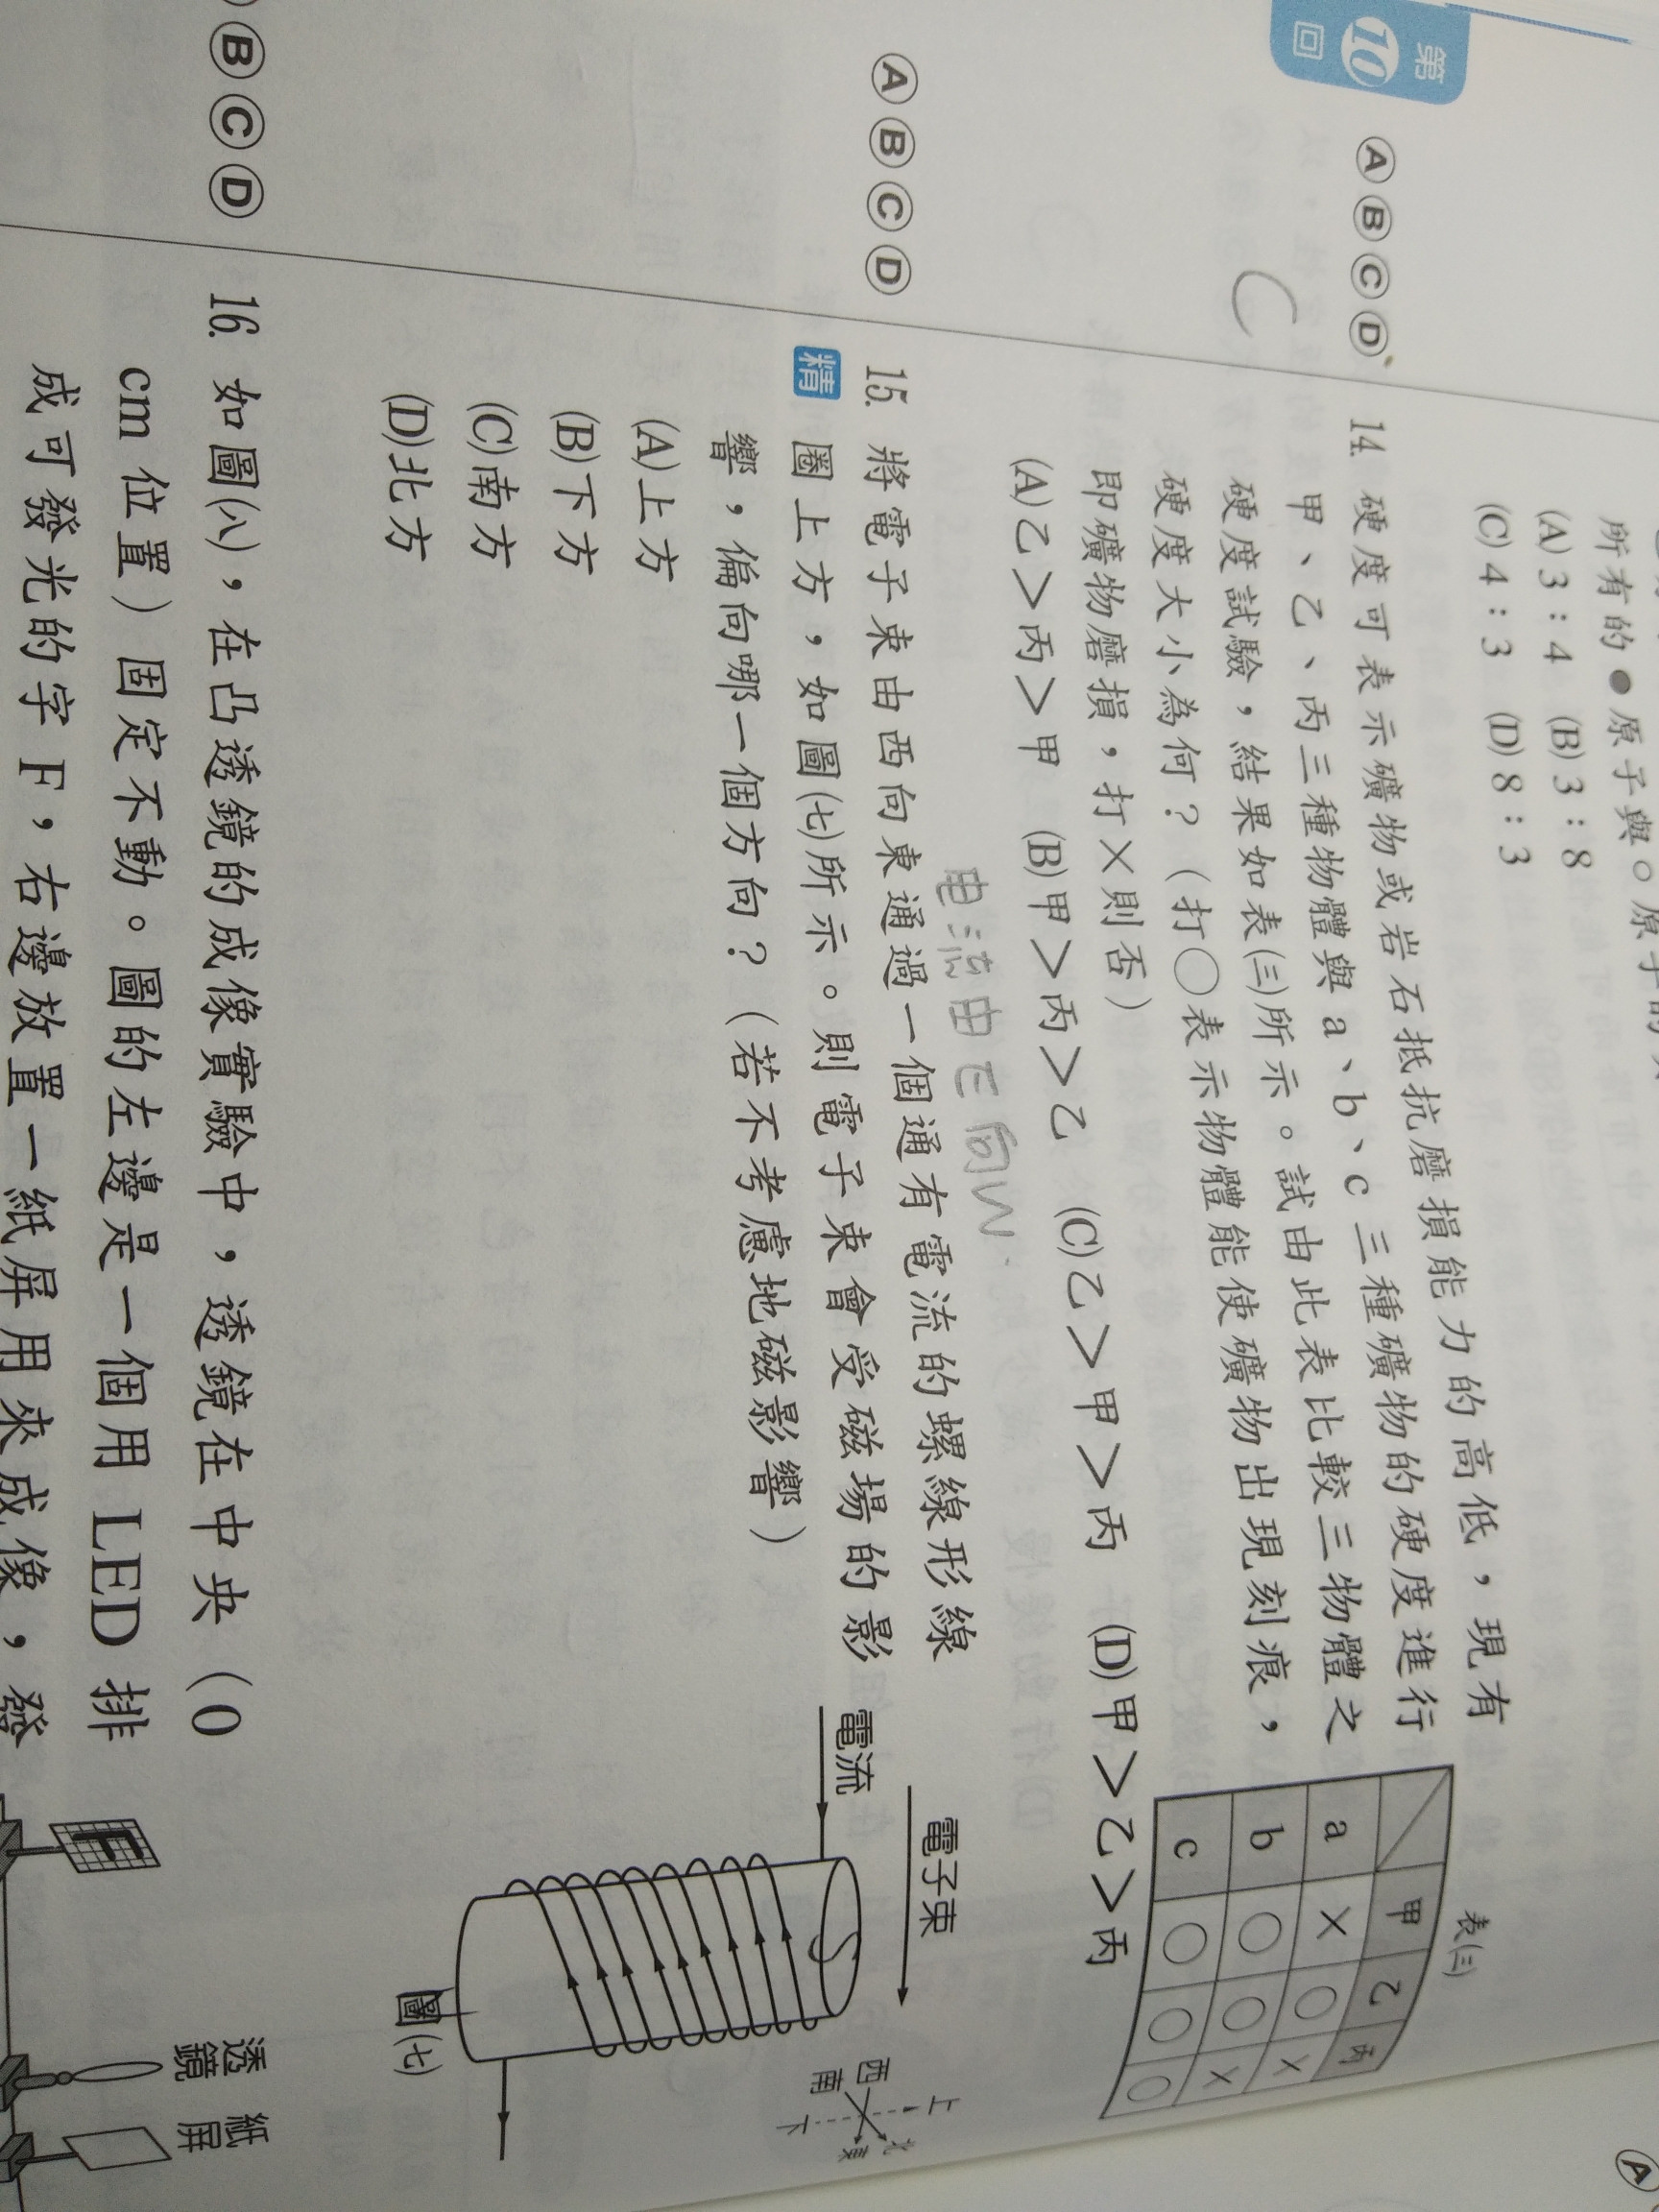 第
10
回
所有的●原子與○原子的
(A) 3：4 (B) 3：8
(C) 4：3 (D) 8：3
Ⓐ Ⓑ Ⓒ Ⓓ
14. 硬度可表示礦物或岩石抵抗磨損能力的高低，現有
甲、乙、丙三種物體與 a、b、c 三種礦物的硬度進行
硬度試驗，結果如表(三)所示。試由此表比較三物體之
硬度大小為何？（打○表示物體能使礦物出現刻痕，
即礦物磨損，打×則否）
(A)乙＞丙＞甲 (B)甲＞丙＞乙 (C)乙＞甲＞丙 (D)甲＞乙＞丙
C
表(三)
甲 乙 丙
a × ○ ×
b ○ ○ ×
c ○ ○ ○
电流由E向W.
Ⓐ Ⓑ Ⓒ Ⓓ
15. 將電子束由西向東通過一個通有電流的螺線形線
精 圈上方，如圖(七)所示。則電子束會受磁場的影
響，偏向哪一個方向？（若不考慮地磁影響）
(A)上方
(B)下方
(C)南方
(D)北方
電子束
電流
上
北
西 東
南
下
圖(七)
Ⓑ Ⓒ Ⓓ
16. 如圖(八)，在凸透鏡的成像實驗中，透鏡在中央（0
cm 位置）固定不動。圖的左邊是一個用 LED 排
成可發光的字 F，右邊放置一紙屏用來成像，發
F
透鏡
紙屏
Ⓐ